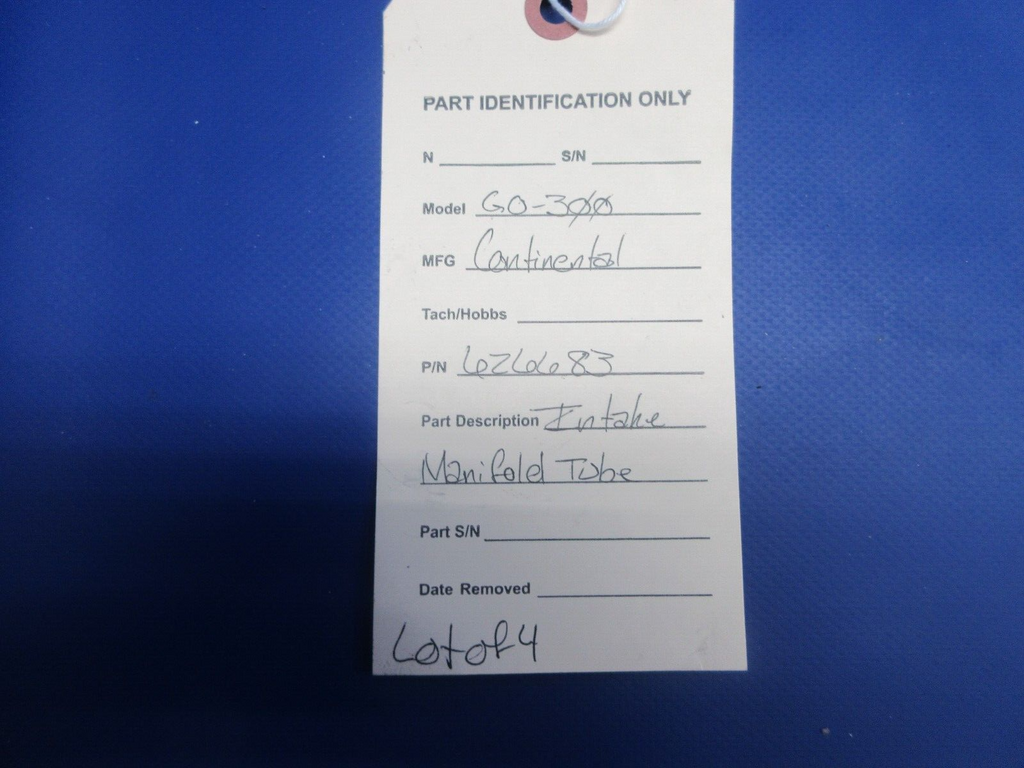 PART IDENTIFICATION ONLY
N S/N
Model GO-300
MFG Continental
Tach/Hobbs
P/N 626683
Part Description Intake
Manifold Tube
Part S/N
Date Removed
Lot of 4